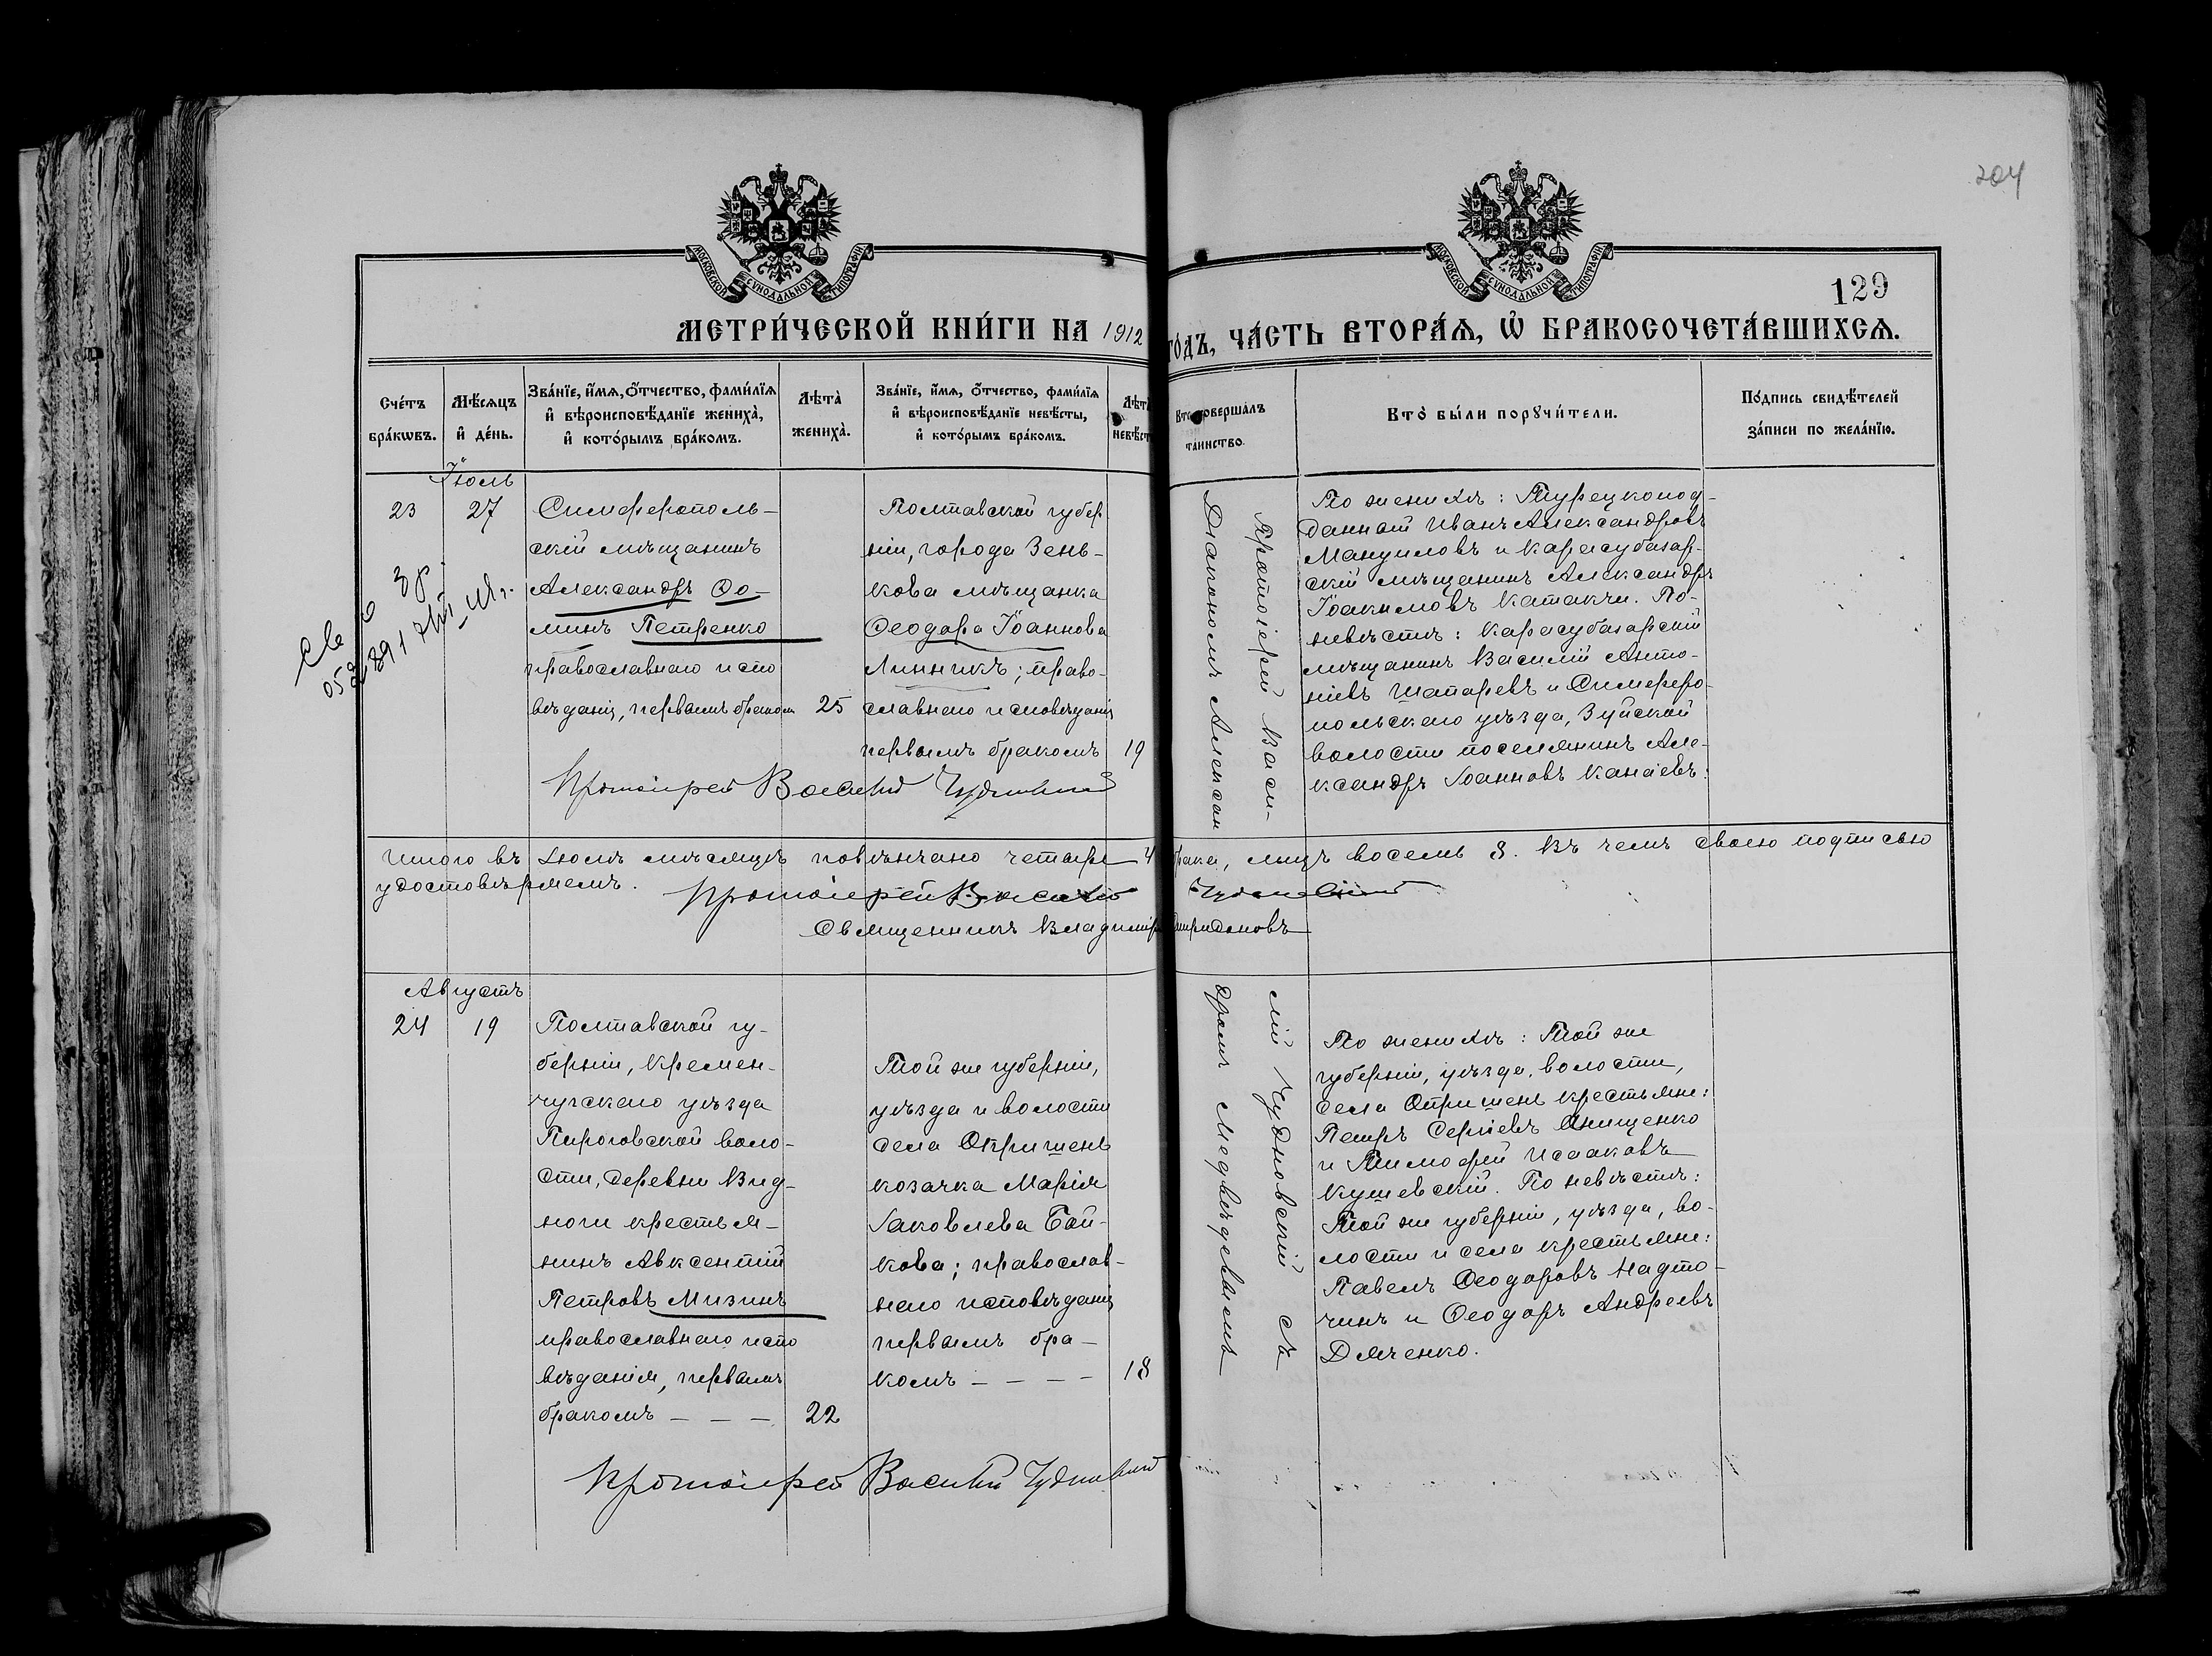 204
129
МОСКОВСКОЙ СѴНОДАЛЬНОЙ ТИПОГРАФІИ
МОСКОВСКОЙ СѴНОДАЛЬНОЙ ТИПОГРАФІИ
МЕТРИ́ЧЕСКОЙ КНИ́ГИ НА 1912 ГО́ДЪ, ЧА́СТЬ ВТОРА́Я, Ѡ҆ БРАКОСОЧЕТА́ВШИХСЯ.
Сче́тъ бра́кωвъ.
Мѣ́сяцъ и҆ де́нь.
Зва́нїе, и҆́мя, ѻ҆́тчество, фами́лїя
и҆ вѣроисповѣ́данїе жениха̀,
и҆ кото́рымъ бра́комъ.
Лѣта̀ жениха̀.
Зва́нїе, и҆́мя, ѻ҆́тчество, фами́лїя
и҆ вѣроисповѣ́данїе невѣ́сты,
и҆ кото́рымъ бра́комъ.
Лѣта̀ невѣ́ст
Кто̀ соверша́лъ
та́инство.
Кто̀ бы́ли порꙋчи́тели.
По́дпись свидѣ́телей
за́писи по жела́нїю.
Іюль
23
27
Симферополь-
скій мѣщанинъ
Александръ Ѳо-
минъ Петренко
православнаго испо
вѣданія, первымъ бракомъ
25
Полтавской губер
ніи, города Зень-
кова мѣщанка
Ѳеодора Іоаннова
Линникъ; право-
славнаго исповѣданія
первымъ бракомъ
19
Протоіерей Василій Чудновскій
Протоіерей Васи-
Діакономъ Алексан
По женихѣ: Турецкопод-
данный Иванъ Александровъ
Мануиловъ и Карасубазар-
скій мѣщанинъ Александръ
Іоакимовъ Катакчи. По-
невѣстѣ: Карасубазарскій
мѣщанинъ Василій Анто-
ніевъ Шапаревъ и Симферо-
польскаго уѣзда, Зуйской
волости поселянинъ Але-
ксандръ Іоанновъ Канаевъ.
Итого въ Іюлѣ мѣсяцѣ повѣнчано четыре 4 брака, лицъ восемь 8. Въ чемъ своею подписью
удостовѣряемъ. Протоіерей Василій Чудновскій
Священникъ Владиміръ Спиридоновъ
Августъ
24
19
Полтавской гу-
берніи, Кремен-
чугскаго уѣзда
Пироговской воло-
сти, деревни Вид-
ноги крестья-
нинъ Авксентій
Петровъ Мизинъ
православнаго испо
вѣданія, первымъ
бракомъ — — —
22
Той же губерніи,
уѣзда и волости
села Опришень
козачка Марія
Іаковлева Бай-
кова; православ-
наго исповѣданія
первымъ бра-
комъ — — — —
18
Протоіерей Василій Чудновскій
лій Чудновскій съ
дромъ Медвѣдевымъ
По женихѣ: Той же
губерніи, уѣзда, волости,
села Опришень крестьяне:
Петръ Сергіевъ Онищенко
и Тимофей Исааковъ
Кушевскій. По невѣстѣ:
Той же губерніи, уѣзда, во-
лости и села крестьяне:
Павелъ Ѳеодоровъ Надто-
чинъ и Ѳеодоръ Андреевъ
Дяченко.